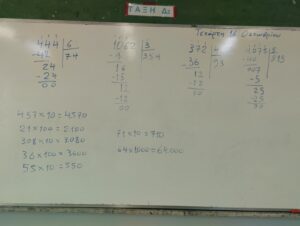 ΤΑΞΗ Δ2
Τετάρτη 16 Οκτωβρίου
444 6
-42 74
24
-24
00
1062 3
-9 354
16
-15
12
-12
00
372 4
-36 93
12
-12
00
5
-5
25
-25
00
457×10=4570
21×100=2100
308×10=3080
36×100=3600
55×10=550
71×10=710
64×1000=64000